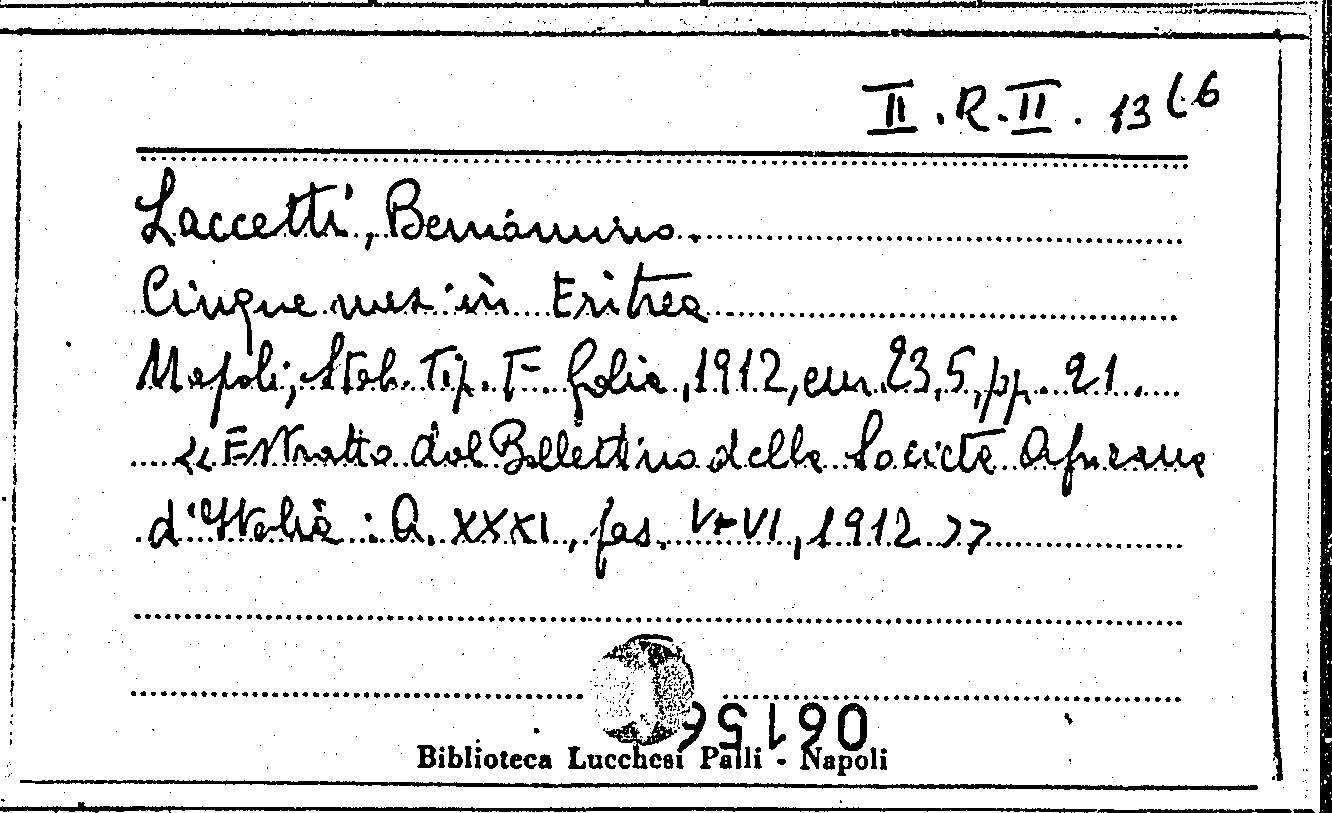 II.R.II. 13 (6
Laccetti, Beniamino.
Cinque mesi in Eritrea
Napoli, Stab. Tip. F. Golia, 1912, cm. 23,5, pp. 21.
«Estratto dal Bollettino della Società Africana
d'Italia: A. XXXI, fas. V-VI, 1912»
Biblioteca Lucchesi Palli - Napoli